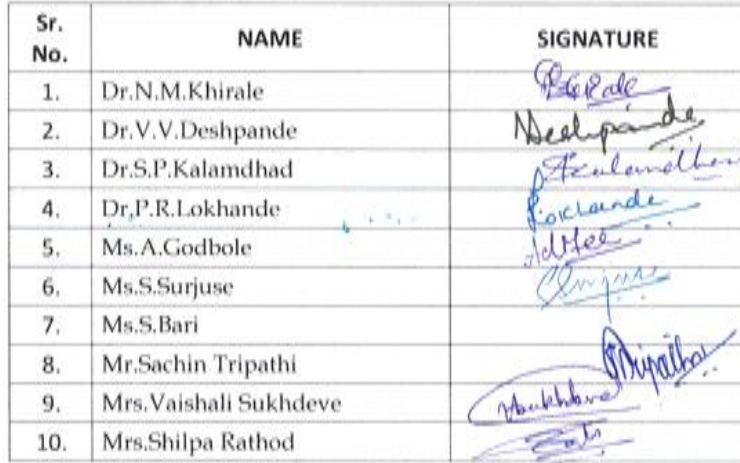 Sr. No. NAME SIGNATURE
1. Dr.N.M.Khirale
2. Dr.V.V.Deshpande Deshpande
3. Dr.S.P.Kalamdhad
4. Dr,P.R.Lokhande Lokhande
5. Ms.A.Godbole
6. Ms.S.Surjuse
7. Ms.S.Bari
8. Mr.Sachin Tripathi Tripathi
9. Mrs.Vaishali Sukhdeve
10. Mrs.Shilpa Rathod